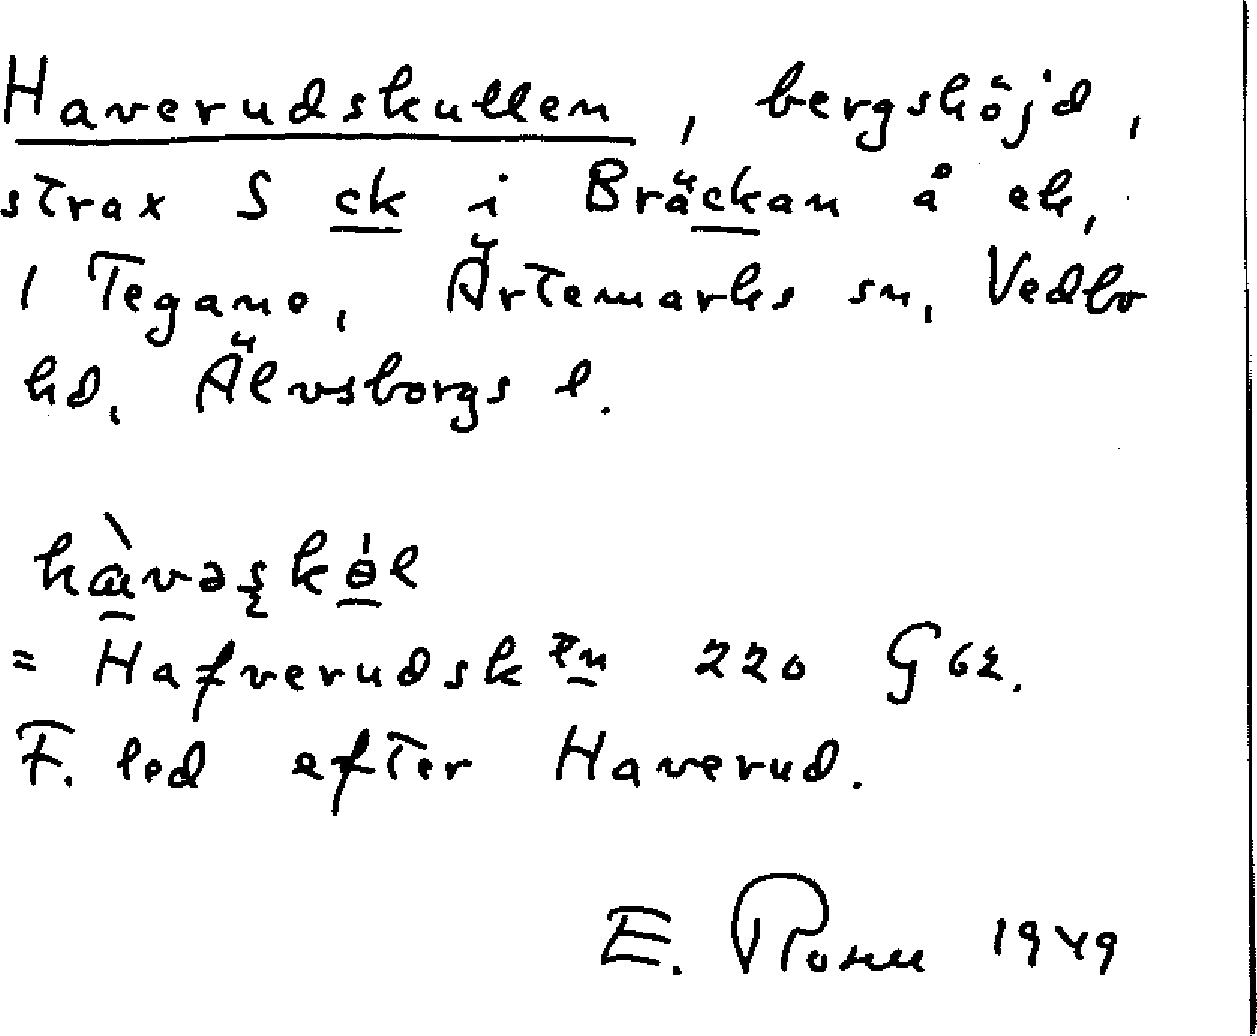 Haverudskullen, bergshöjd,
strax S ck i Bräckan å ek,
i Tegane, Ärtemarks sn, Vedbo
hd, Älvsborgs l.
= Hafverudsk en 220 Gbl.
F. led efter Haverud.
E. Rosen 1949